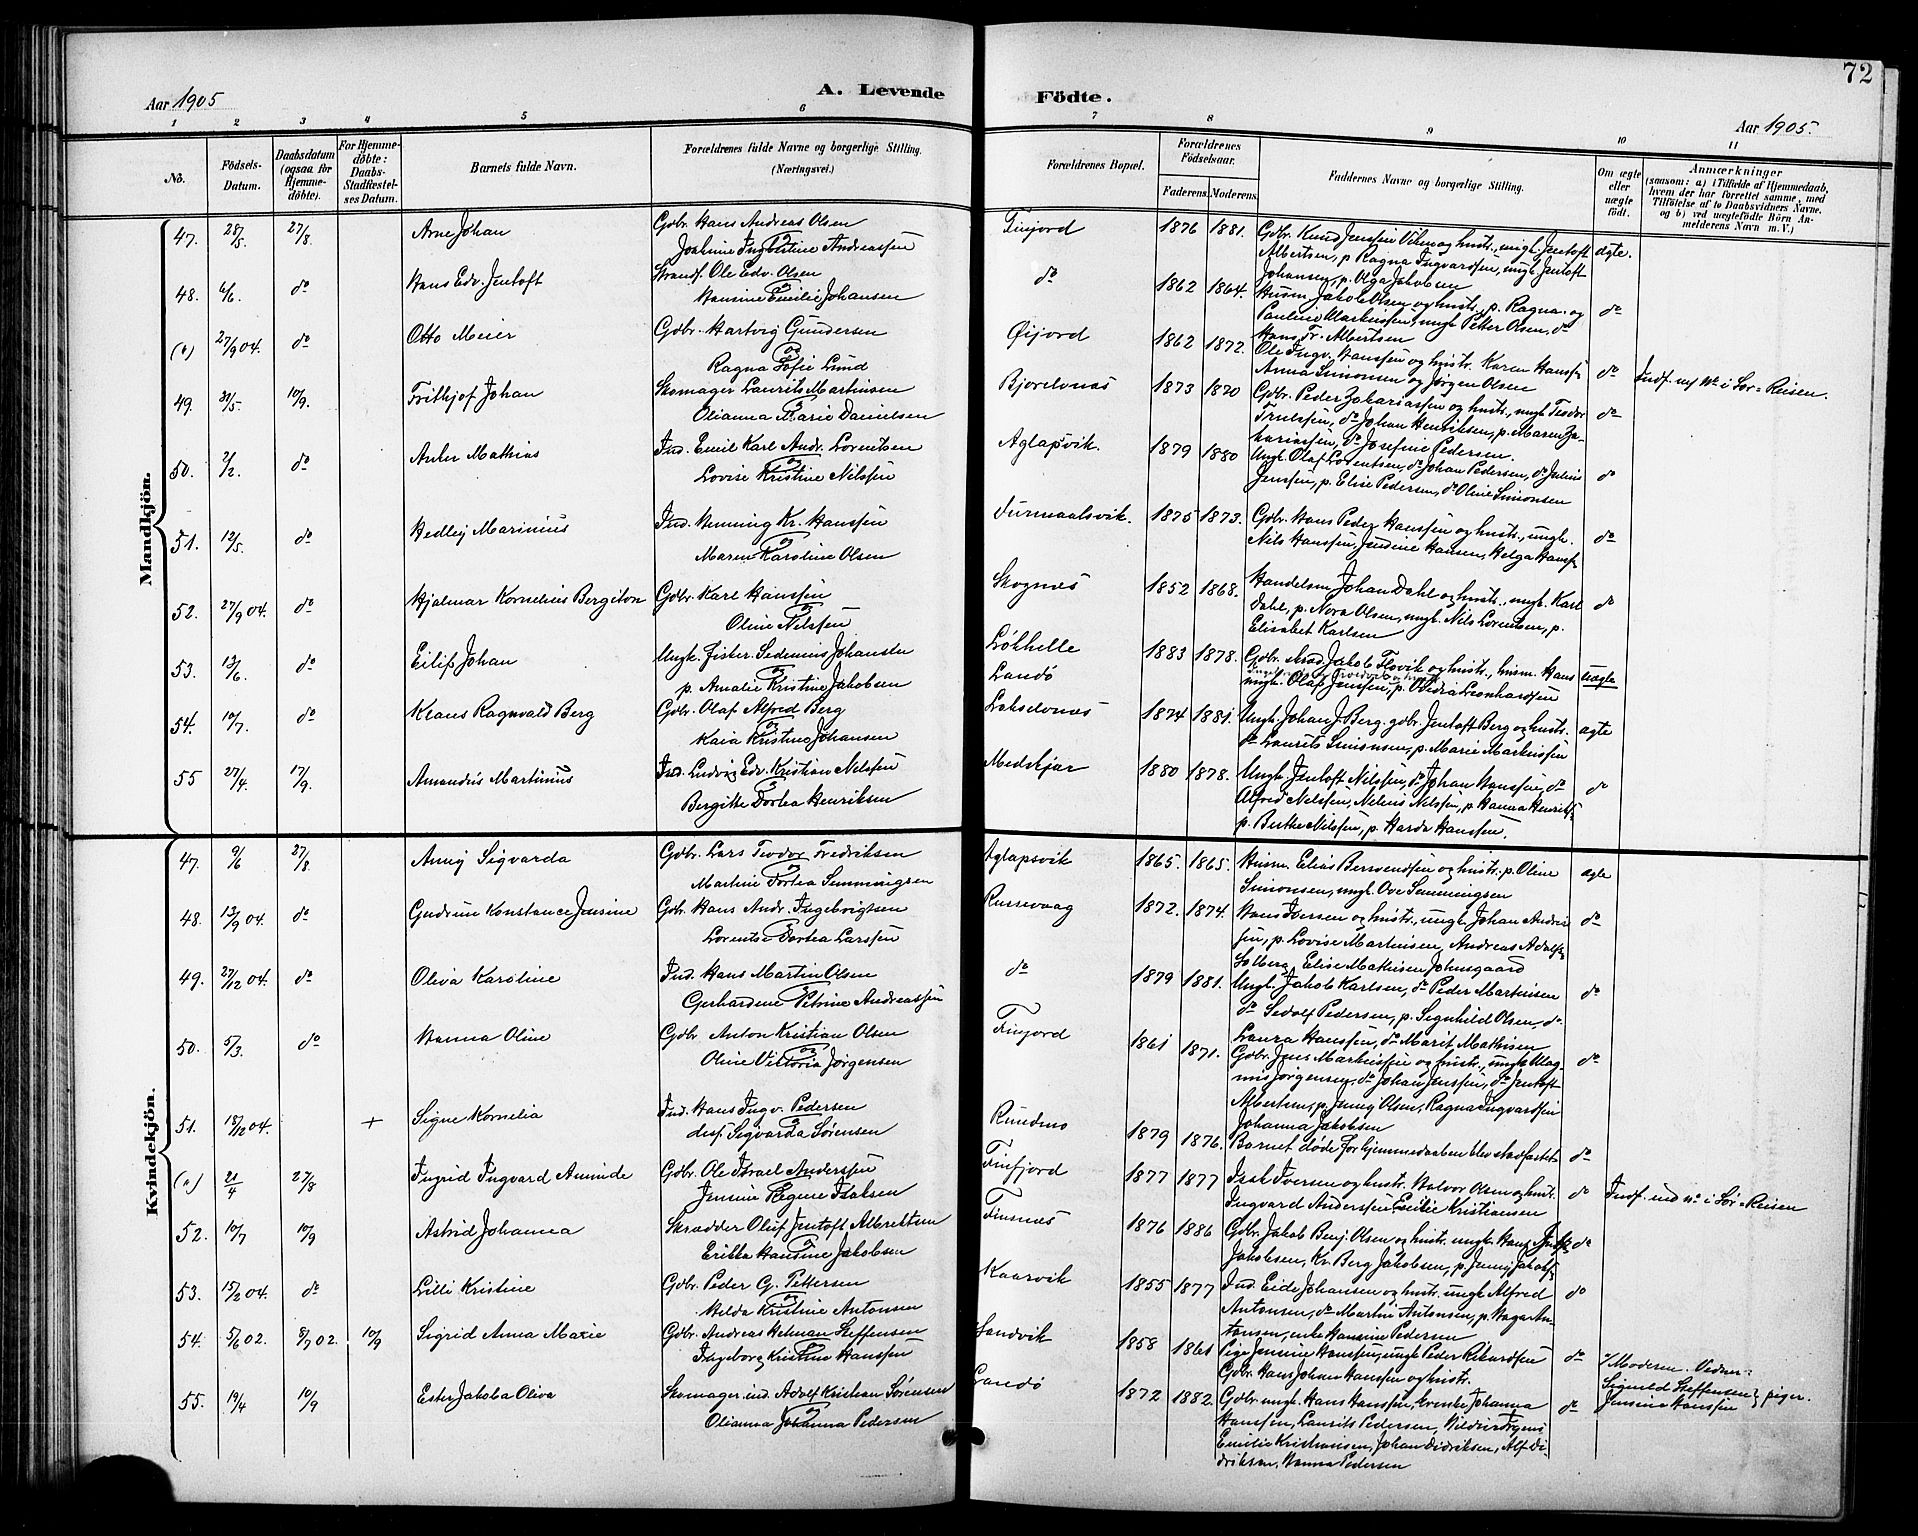 72
Aar 1905
A. Levende
Födte.
Aar 1905.
1 2 3 4 5 6 7 8 9 10 11
No.
Födsels-Datum.
Daabsdatum (ogsaa for Hjemme-döbte).
For Hjemme-döbte: Daabs-Stadfæstel-ses Datum.
Barnets fulde Navn.
Forældrenes fulde Navne og borgerlige Stilling.
(Næringsvei.)
Forældrenes Bopæl.
Forældrenes Födselsaar.
Faderens.
Moderens.
Faddernes Navne og borgerlige Stilling.
Om ægte eller uægte födt.
Anmærkninger
(saasom: a) i Tilfælde af Hjemmedaab,
hvem der har forrettet samme, med
Tilföielse af to Daabsvidners Navne,
og b) ved uegtefödte Börn An-
melderens Navn m. V.)
Mandkjön.
47. 28/5 27/8 Arne Johan Gdbr. Hans Andreas Olsen Finjord 1876 1881. Gdbr. Knud Jenssen Viken og hustr., ungk. Jentoft ægte.
og
Joakime Ingbertine Andreassen Albertsen, p. Ragna Ingvardsen, ungk. Jentoft
Johansen, p. Olga Jakobsen
48. 6/6. do Hans Edv. Jentoft Strands. Ole Edv. Olsen do 1862 1864. Husm. Jakob Olsen og hustr., p. Ragna og do
og
Hansine Emilie Johansen Pauline Markussen, ungk. Petter Olsen, do
Hans Fr. Albertsen
27/9 04. do Otto Meier Gdbr. Hartvig Gundersen Øijord 1862 1872. Ole Ingv. Hanssen og hustr. Karen Hanss. do Indf. uf No i Sør-Reisen.
og
Ragna Sofie Lund Anna Simonsen og Jørgen Olsen
49. 30/5. 10/9. Frithjof Johan Skomager Laurits Martinsen Bjorelvnæs 1873 1870 Gdbr. Peder Zakariassen og hustr., ungk. Teodor do
og
Olianna Marie Danielsen Trulssen, do Johan Henriksen, p. Maren Za-
kariassen, do Josefine Pedersen.
50. 2/2. do Anker Mathias Ind. Emil Karl Andr. Lorentsen Aglapsvik. 1879 1880 Ungk. Olaf Lorentsen, do Johan Pedersen, do Julius do
og
Lovise Kristine Nilssen Jenssen, p. Elise Pedersen, do Oline Simonsen
51. 12/5. do Hedley Marinius Ind. Henning Kr. Hanssen Furmaalsvik. 1875 1873. Gdbr. Hans Peder Hanssen og hustr., ungk. do
og
Maren Karoline Olsen Nils Hanssen, Jendine Hansen, Helga Hanss.
52. 27/9 04. do Hjalmar Kornelius Bergiton Gdbr. Karl Hanssen Skognæs 1852 1868. Handelsm. Johan Dahl og hustr., ungk. Karl do
og
Oline Nilssen Dahl, p. Nora Olsen, ungk. Nils Lorentsen, p.
Elisabet Karlsen
53. 13/6. do Eilif Johan Ungk. fisker. Sedenius Johansen Løkhelle 1883 1878. Gdbr. skræd. Jakob Flovik og hustr., husm. Hans uægte
og
p. Amalie Kristine Jakobsen Landø ungk. Olaf Jenssen, p. Leonhardsen
54. 10/7. do Klaus Ragnvald Berg Gdbr. Olaf Alfred Berg Lakselvnæs 1874 1881. Ungk. Johan J. Berg. gdbr. Jentoft Berg og hustr. ægte
og
Kaia Kristine Johansen do Laurits Simonsen, p. Marie Markussen
55 27/4. 17/9. Amandus Martinius Ind. Ludvig Edv. Kristian Nilssen Medskjær 1880 1878. Ungk. Jentoft Nilssen, do Johan Hanssen, do do
og
Bergitte Dortea Henriksen Alfred Nilssen, Nelius Nilssen, p. Hanna Henriks.
p. Berthe Nilssen, p. Harda Hanssen.
Kvindekjön.
47. 9/6 27/8 Anny Sigvarda Gdbr. Lars Teodor Fredriksen Aglapsvik 1865. 1865. Husm. Elias Berntsen og hustr. p. Oline ægte
og
Martine Dortea Simmingsen Simonsen, ungk. Ove Semmingsen
48. 13/9 04. do Gudrun Konstance Jensine Gdbr. Hans Andr. Ingebrigtsen Russevaag 1872. 1874. Hans Iversen og hustr., ungk. Johan Andrea- do
og
Lorentse Dortea Larssen sen, p. Lovise Martinsen, Andreas Adolfs.
Solberg, Elise Mathisen Johnsgaard
49. 27/12 04. do Oliva Karoline Ind. Hans Martin Olsen do 1879 1881. Ungk. Jakob Karlsen, do Peder Martinsen do
og
Gerhardine Petrine Andreassen do Sedolf Pedersen, p. Signhild Olsen, do
Laura Hanssen, do Marit Mathisen
50. 5/3. do Hanna Oline Gdbr. Anton Kristian Olsen Finjord 1861 1871. Gdbr. Jens Markussen og hustr., ungk. Mag- do
og
Oline Viktoria Jørgensen nus Jørgensen, do Johan Jenssen, do Jentoft
Albertsen, p. Jenny Olsen, Ragna Ingvardsen
Johanna Jakobsen
51. 18/12 04. + Signe Kornelia Ind. Hans Ingv. Pedersen Rundmo 1879 1876. Barnet døde før hjemmedaaben blev stadfæstet do
og
Sigvarda Sørensen
21/4 27/8 Ingrid Ingvard Aminde Gdbr. Ole Israel Anderssen Finfjord 1877 1877 Isak Iversen og hustr. Halvor Olsen og hustr. do Indf. und No i Sør-Reisen
og
Jensine Regine Isaksen Ingvard Anderssen Emilie Kristiansen
52. 10/7 10/9 Astrid Johanna Skrædder Oluf Jentoft Albrektsen Finnæs 1876 1886 Gdbr. Jakob Benj. Olsen og hustr. ungk. Hans do
og
Erikka Hansine Jakobsen Jakobsen, Kr. Berg Jakobsen, p. Jenny Jakobs.
53. 15/2 04. do Lilli Kristine Gdbr. Peder G. Pettersen Kaarvik 1855 1877 Ind. Eide Johansen og hustr. ungk. Alfred do
og
Hilda Kristine Antonsen Antonsen, do Martin Antonsen, p. Hagar An-
tonsen, enke Hansine Pedersen
54. 5/6 02. 8/7 02. 10/9 Sigrid Anna Marie Gdbr. Andreas Helman Steffensen Sandvik 1858 1861 Pige Jensine Hanssen, ungk. Peder Rikardsen do Moderen. Vidner:
og
Ingeborg Kristine Hanssen Gdbr. Hans Johan Hanssen og hustr. Signeld Steffensen } piger.
Jensine Hanssen
55. 19/4 10/9 Ester Jakoba Oliva Skomager. ind. Adolf Kristian Sørensen Landø 1872 1882. Gdbr. ungk. Hans Hanssen, Johanna do
og
Olianna Johanna Pedersen Hanssen, Laurits Pedersen,
Emilie Kristiansen, Johan Didriksen, Alf. Di-
driksen, Hanna Pedersen